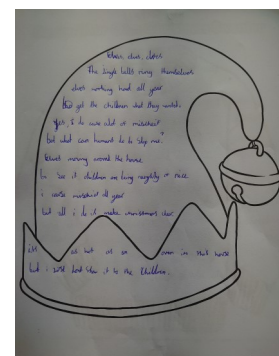 The jingle bells ring themselves
elves working hard all year
to get the children what they want.
yes, I do cause alot of mischief
but what can humans do to stop me?
Elves moving around the house
to see if children are being naughty or nice
i cause mischief all year
but all i do is make christmas
it's as hot as an oven in that house
but i just love to the children.